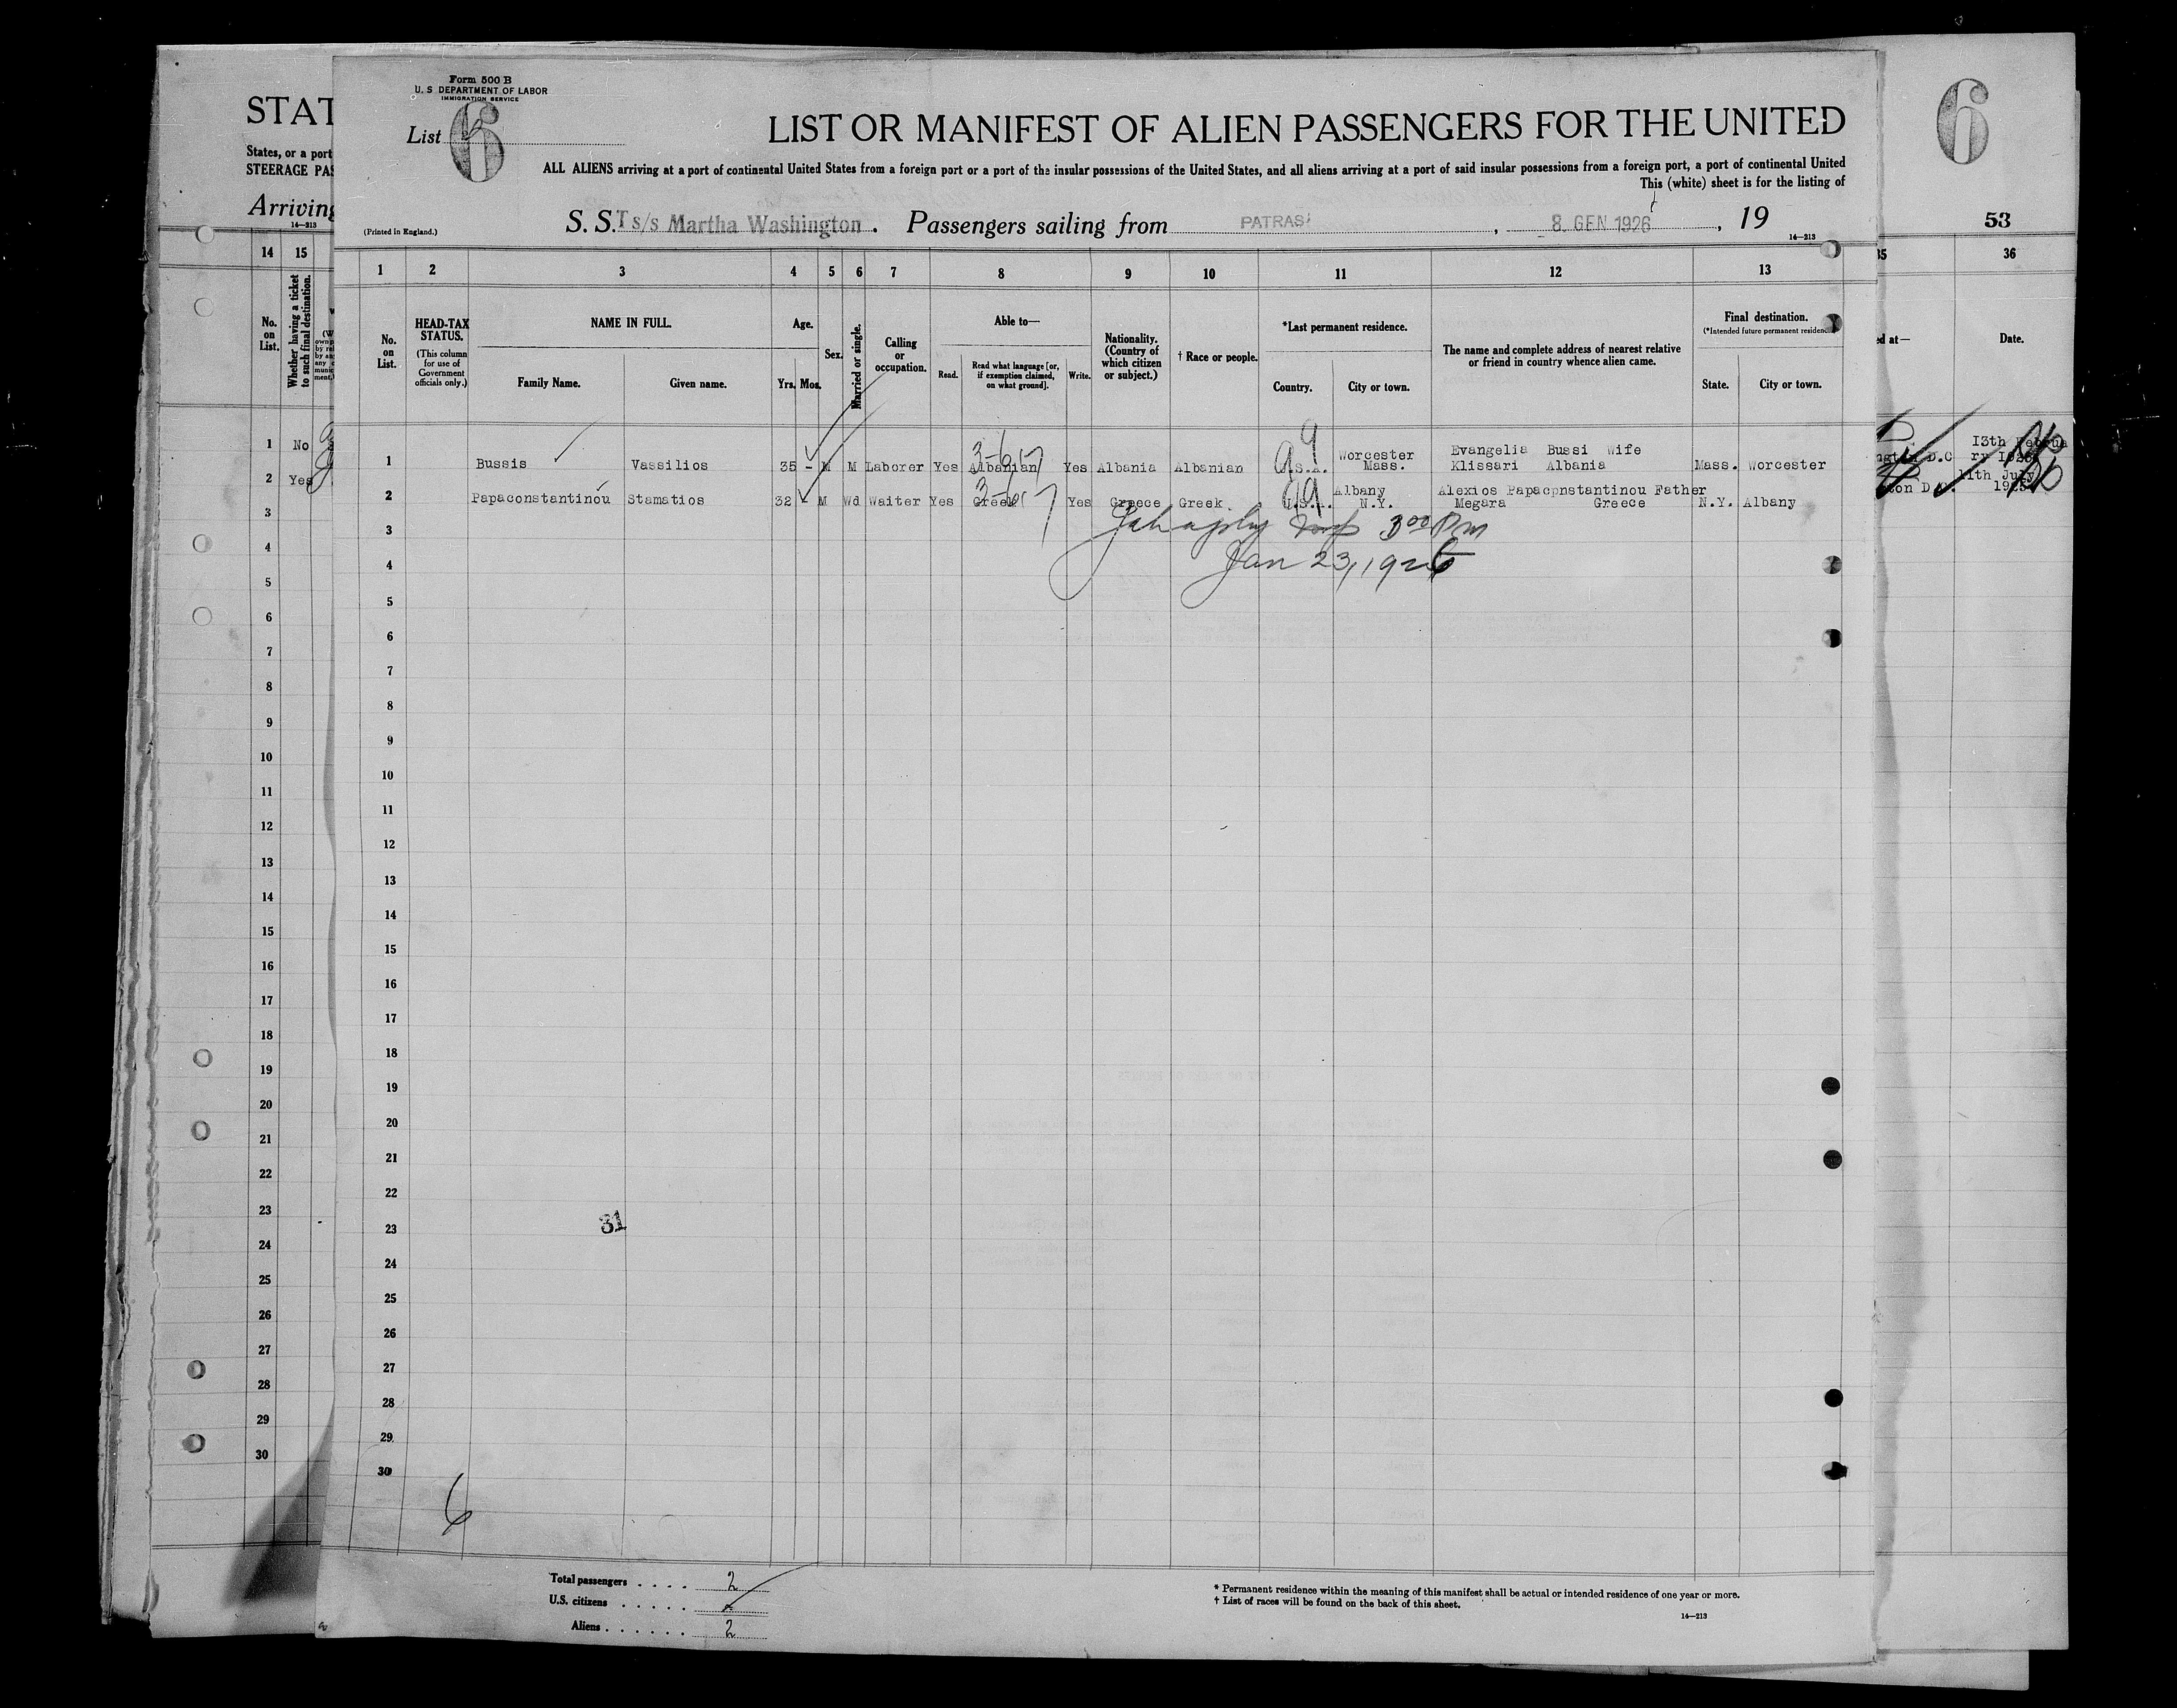 Form 500 B
U. S DEPARTMENT OF LABOR
IMMIGRATION SERVICE
List 6
LIST OR MANIFEST OF ALIEN PASSENGERS FOR THE UNITED
ALL ALIENS arriving at a port of continental United States from a foreign port or a port of the insular possessions of the United States, and all aliens arriving at a port of said insular possessions from a foreign port, a port of continental United
This (white) sheet is for the listing of
(Printed in England.)
S. S. Ts/s Martha Washington . Passengers sailing from PATRAS , 8 GEN 1926 , 19
14—213
1 2 3 4 5 6 7 8 9 10 11 12 13
No. on List.
HEAD-TAX STATUS.
(This column for use of Government officials only.)
NAME IN FULL.
Family Name. Given name.
Age.
Yrs. Mos.
Sex.
Married or single.
Calling or occupation.
Able to—
Read. Read what language [or, if exemption claimed, on what ground]. Write.
Nationality. (Country of which citizen or subject.)
† Race or people.
*Last permanent residence.
Country. City or town.
The name and complete address of nearest relative or friend in country whence alien came.
Final destination.
(*Intended future permanent residence
State. City or town.
1 Bussis Vassilios 35 - M M Laborer Yes Albanian Yes Albania Albanian U.S.A. Worcester Mass. Evangelia Bussi Wife Klissari Albania Mass. Worcester
2 Papaconstantinou Stamatios 32 M Wd Waiter Yes Greek Yes Greece Greek U.S.A. Albany N.Y. Alexios Papacpnstantinou Father Megara Greece N.Y. Albany
3-6-17
3-6-17
3 00 Pm
Jan 23, 1926
3
4
5
6
7
8
9
10
11
12
13
14
15
16
17
18
19
20
21
22
23
31
24
25
26
27
28
29
30
6
Total passengers . . . . 2
U.S. citizens . . . . . .
Aliens . . . . . . 2
* Permanent residence within the meaning of this manifest shall be actual or intended residence of one year or more.
† List of races will be found on the back of this sheet.
14—213
STAT
States, or a port
STEERAGE PAS
Arriving
14—213
14 15
No. on List.
Whether having a ticket to such final destination.
1 No
2 Yes
3
4
5
6
7
8
9
10
11
12
13
14
15
16
17
18
19
20
21
22
23
24
25
26
27
28
29
30
6
53
35 36
ed at— Date.
ngton D.C
13th Februa
ry 1926
ton D.C.
11th July